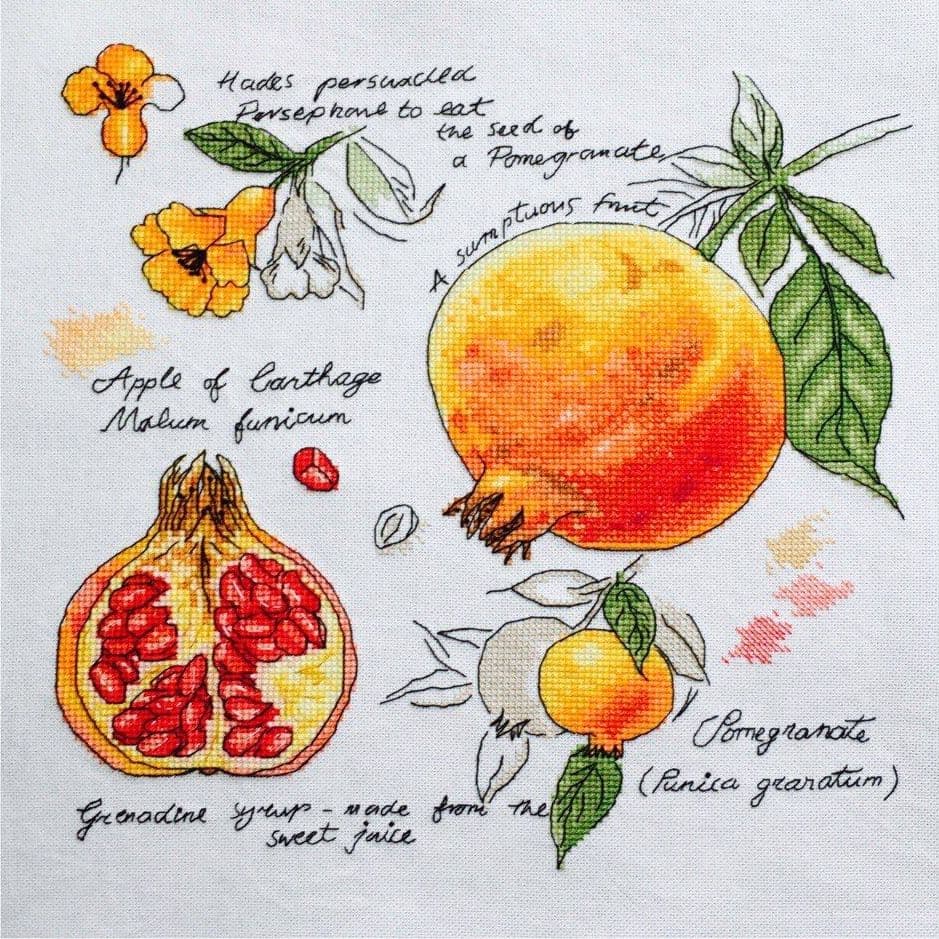 Hades persuaded
Persephone to eat
the seed of
a Pomegranate,
A sumptuous fruit
Apple of Carthage
Malum funicum
Pomegranate
(Punica granatum)
Grenadine syrup - made from the
sweet juice